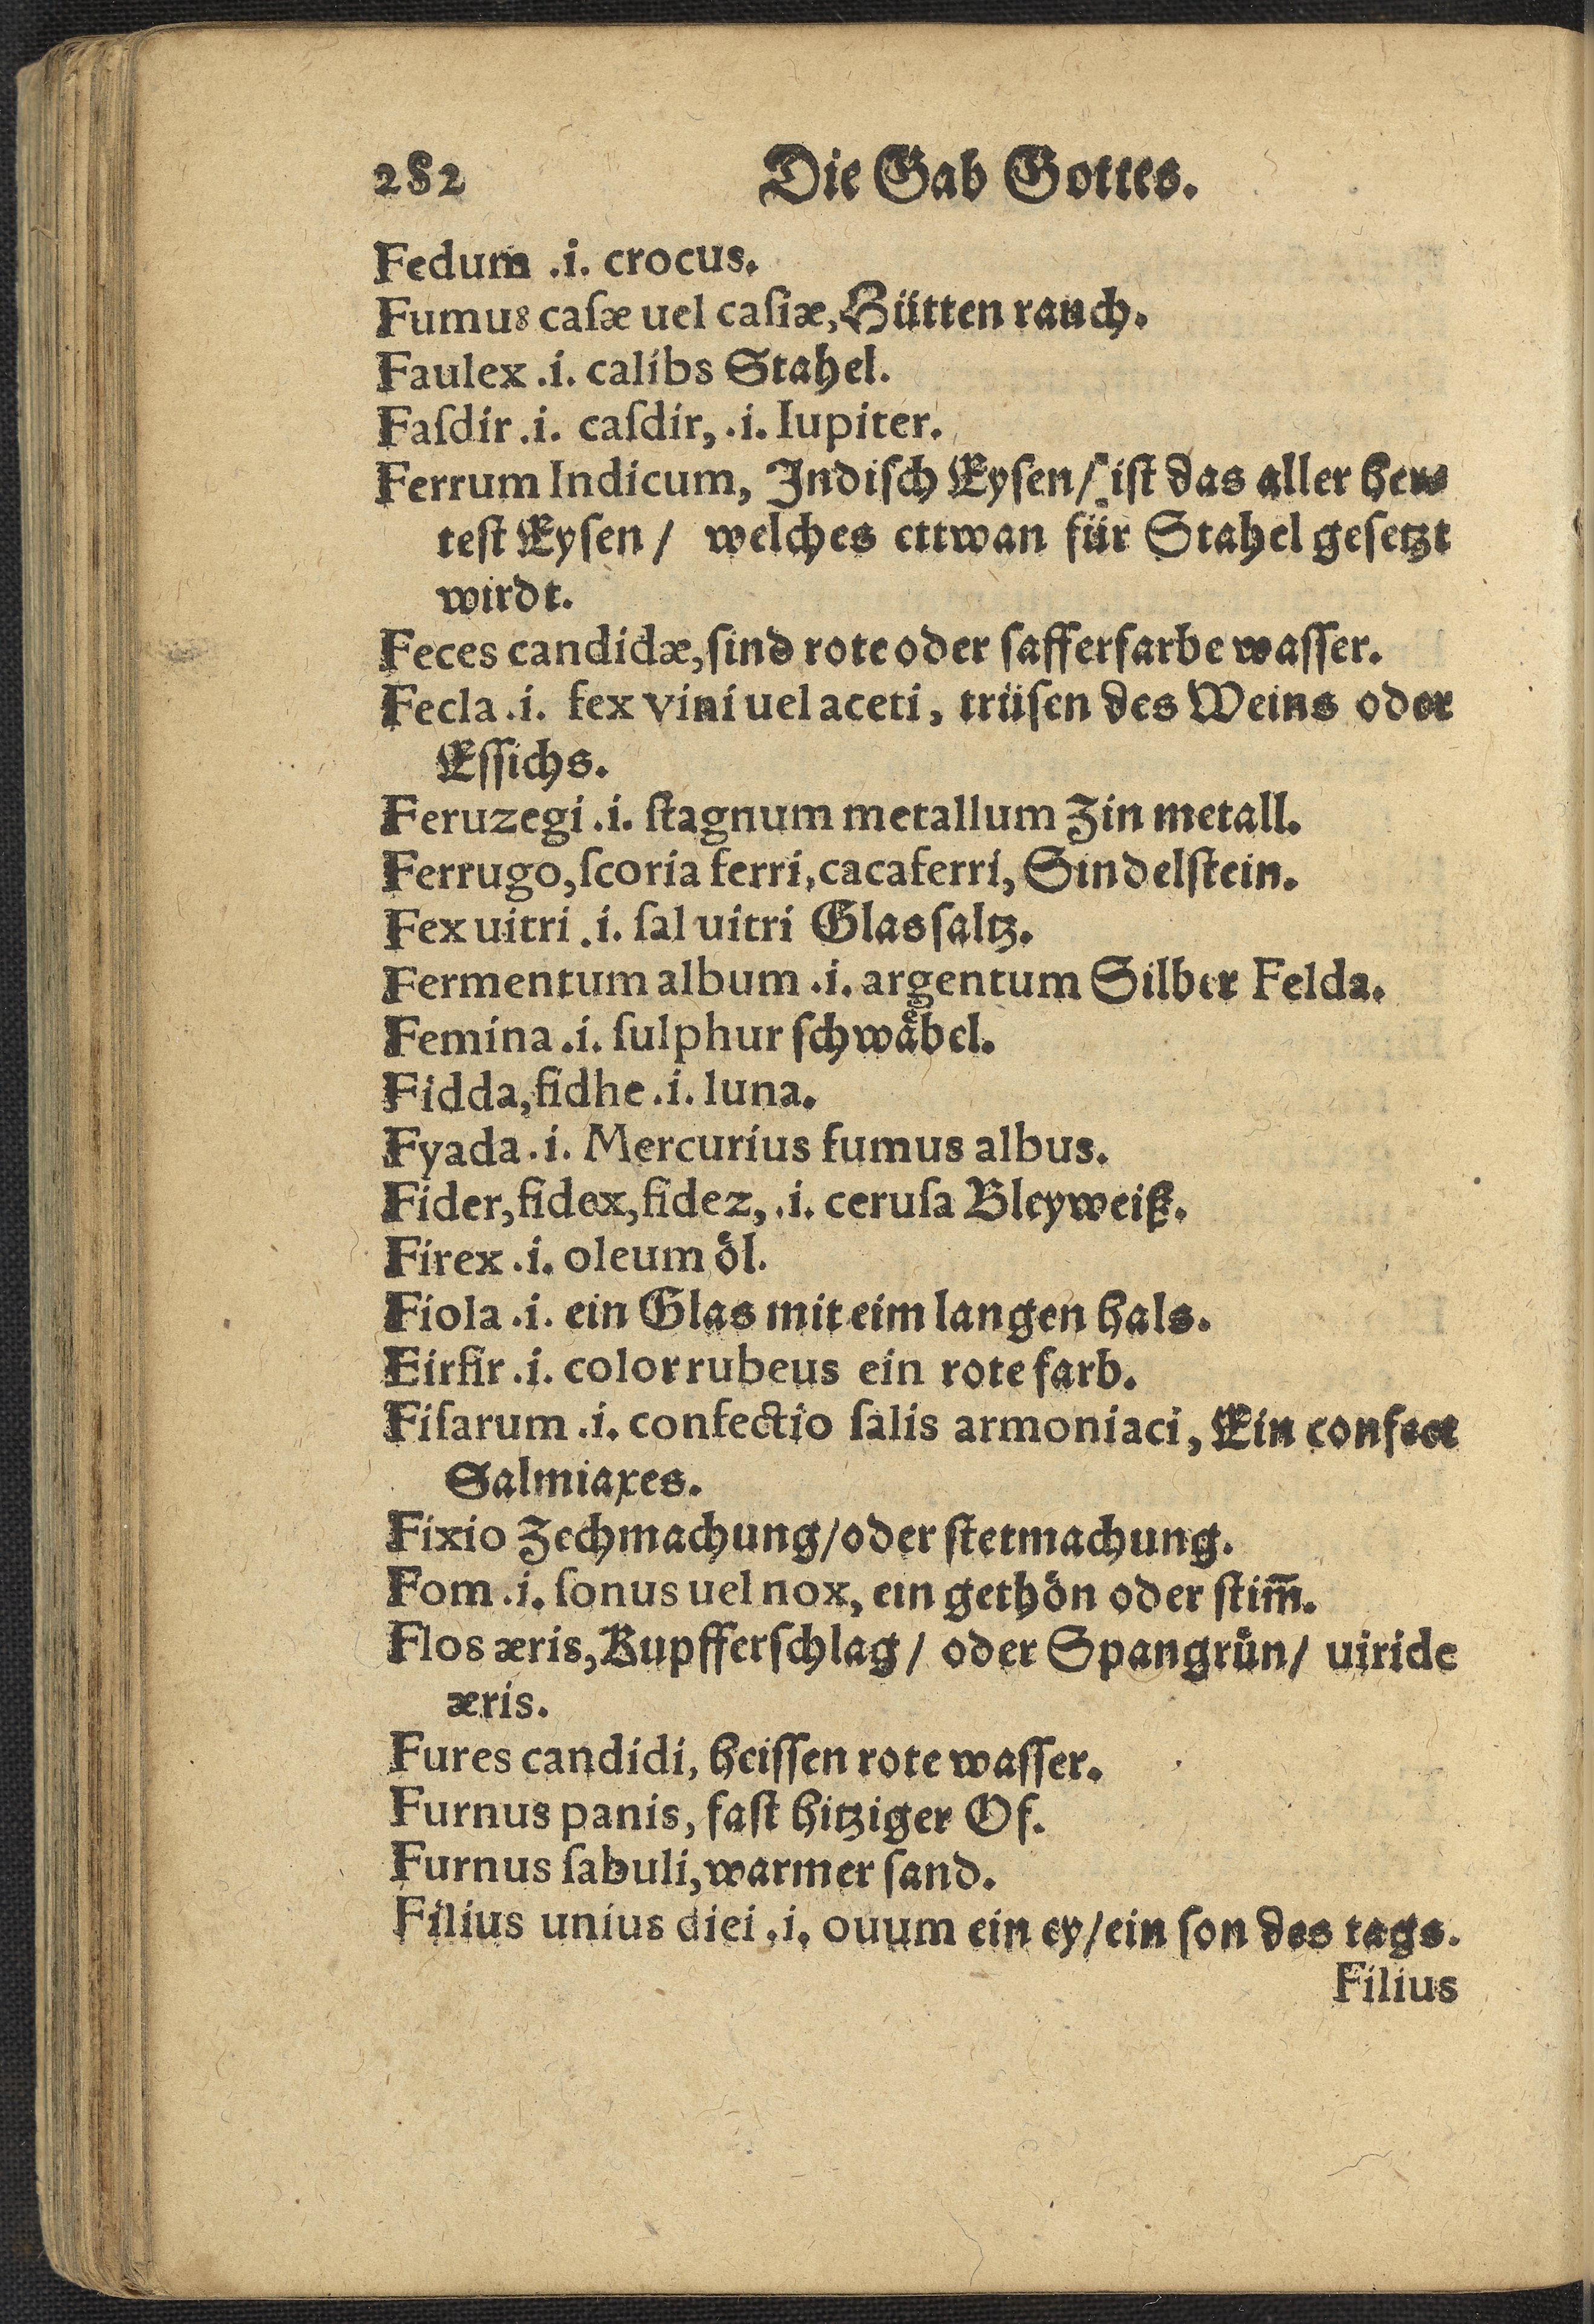 282 Die Gab Gottes.
Fedum .i. crocus.
Fumus caſæ uel caſiæ, Hütten rauch.
Faulex .i. calibs Stahel.
Faſdir .i. caſdir, .i. Iupiter.
Ferrum Indicum, Indiſch Eyſen / iſt das aller her⸗
teſt Eyſen / welches ettwan für Stahel geſetzt
wirdt.
Feces candidæ, ſind rote oder ſafferfarbe waſſer.
Fecla .i. fex vini uel aceti, trüſen des Weins oder
Eſſichs.
Feruzegi .i. ſtagnum metallum Zin metall.
Ferrugo, ſcoria ferri, cacaferri, Sindelſtein.
Fex uitri .i. ſal uitri Glas ſaltz.
Fermentum album .i. argentum Silber Felda.
Femina .i. ſulphur ſchwaͤbel.
Fidda, fidhe .i. luna.
Fyada .i. Mercurius fumus albus.
Fider, fidex, fidez, .i. ceruſa Bleyweiß.
Firex .i. oleum öl.
Fiola .i. ein Glas mit eim langen hals.
Eirfir .i. color rubeus ein rote farb.
Fiſarum .i. confectio ſalis armoniaci, Ein confect
Salmiaxes.
Fixio Zechmachung / oder ſtetmachung.
Fom .i. ſonus uel nox, ein gethön oder ſtim̄.
Flos æris, Kupfferſchlag / oder Spangrün / uiride
æris.
Fures candidi, heiſſen rote waſſer.
Furnus panis, faſt hitziger Of.
Furnus ſabuli, warmer ſand.
Filius unius diei .i. ouum ein ey / ein ſon des tags.
Filius